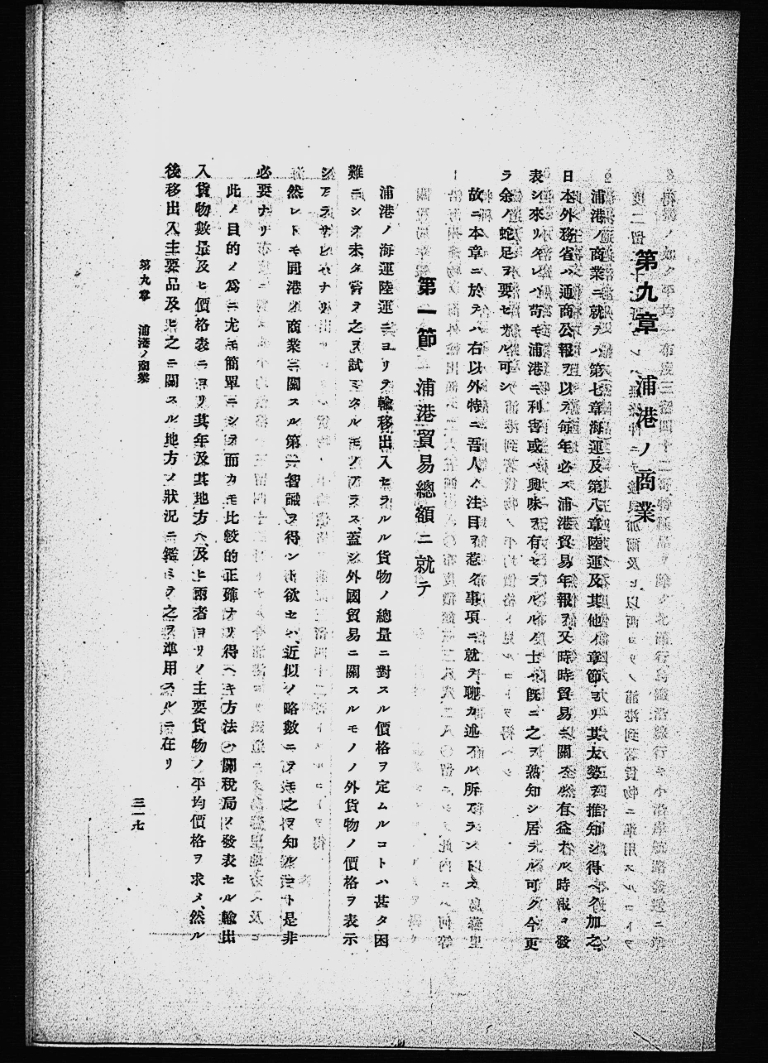 第九章　浦港ノ商業
浦港ノ商業ニ就テハ第七章海運及第八章陸運及其他ノ章節ヨリ其大勢ヲ推知シ得ヘク加之
日本外務省ハ通商公報ヲ以テ每年必ス浦港貿易年報ヲ又時時貿易ニ關スル有益ナル時報ヲ發
表シ來リタレハ苟モ浦港ニ利害或ハ興味ヲ有セラルルノ士ハ既ニ之ヲ熟知シ居ラル可ク今更
ラ余ノ蛇足ヲ要セサル可シ
故ニ本章ニ於テハ右以外特ニ吾人ノ注目ヲ惹ク事項ニ就テ聊カ述フル所アラントス
第一節　浦港貿易總額ニ就テ
浦港ノ海運陸運ニヨリテ輸移出入セラルル貨物ノ總量ニ對スル價格ヲ定ムルコトハ甚タ困
難ニシテ未タ嘗テ之ヲ試ミタルモノアラス蓋シ外國貿易ニ關スルモノノ外貨物ノ價格ヲ表示
シアラサレハナリ
然レトモ同港ノ商業ニ關スル第一智識ヲ得ント欲セハ近似ノ略數ニテモ之ヲ知ルコト是非
必要ナリ
此ノ目的ノ爲ニ尤モ簡單ニシテ而カモ比較的正確ナリ得ヘキ方法ハ關稅局ノ發表セル輸出
入貨物數量及ヒ價格表ニヨリ其年及其地方ヘ及ヒ兩者ヨリノ主要貨物ノ平均價格ヲ求メ、然ル
後移出入主要品及ヒ之ニ關スル地方ノ狀況ニ鑑ミテ之ヲ準用スルニ在リ
第九章　浦港ノ商業
三一七